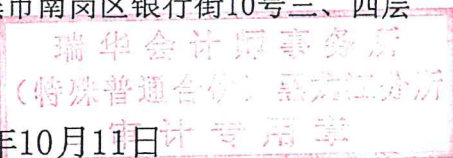 市南岗区银行街10号三、四层
瑞华会计师事务所
（特殊普通合伙）黑龙江分所
审计专用章
年10月11日